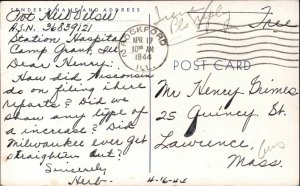 SENDER'S NAME AND ADDRESS
Pvt Herb Olson
A.S.N. 36839121
Station Hospital
Camp Grant, Ill
Dear Henry:
How did Wisconsin
do on filing there
reports? Did we
show any type of
a increase? Did
Milwaukee ever get
straighten out?
Sincerely
Herb.
ROCKFORD
APR 17
10 AM
1944
ILL.
Free
POST CARD
Mr Henry Grimes
25 Quincy St.
Lawrence,
Mass.
4-16-44